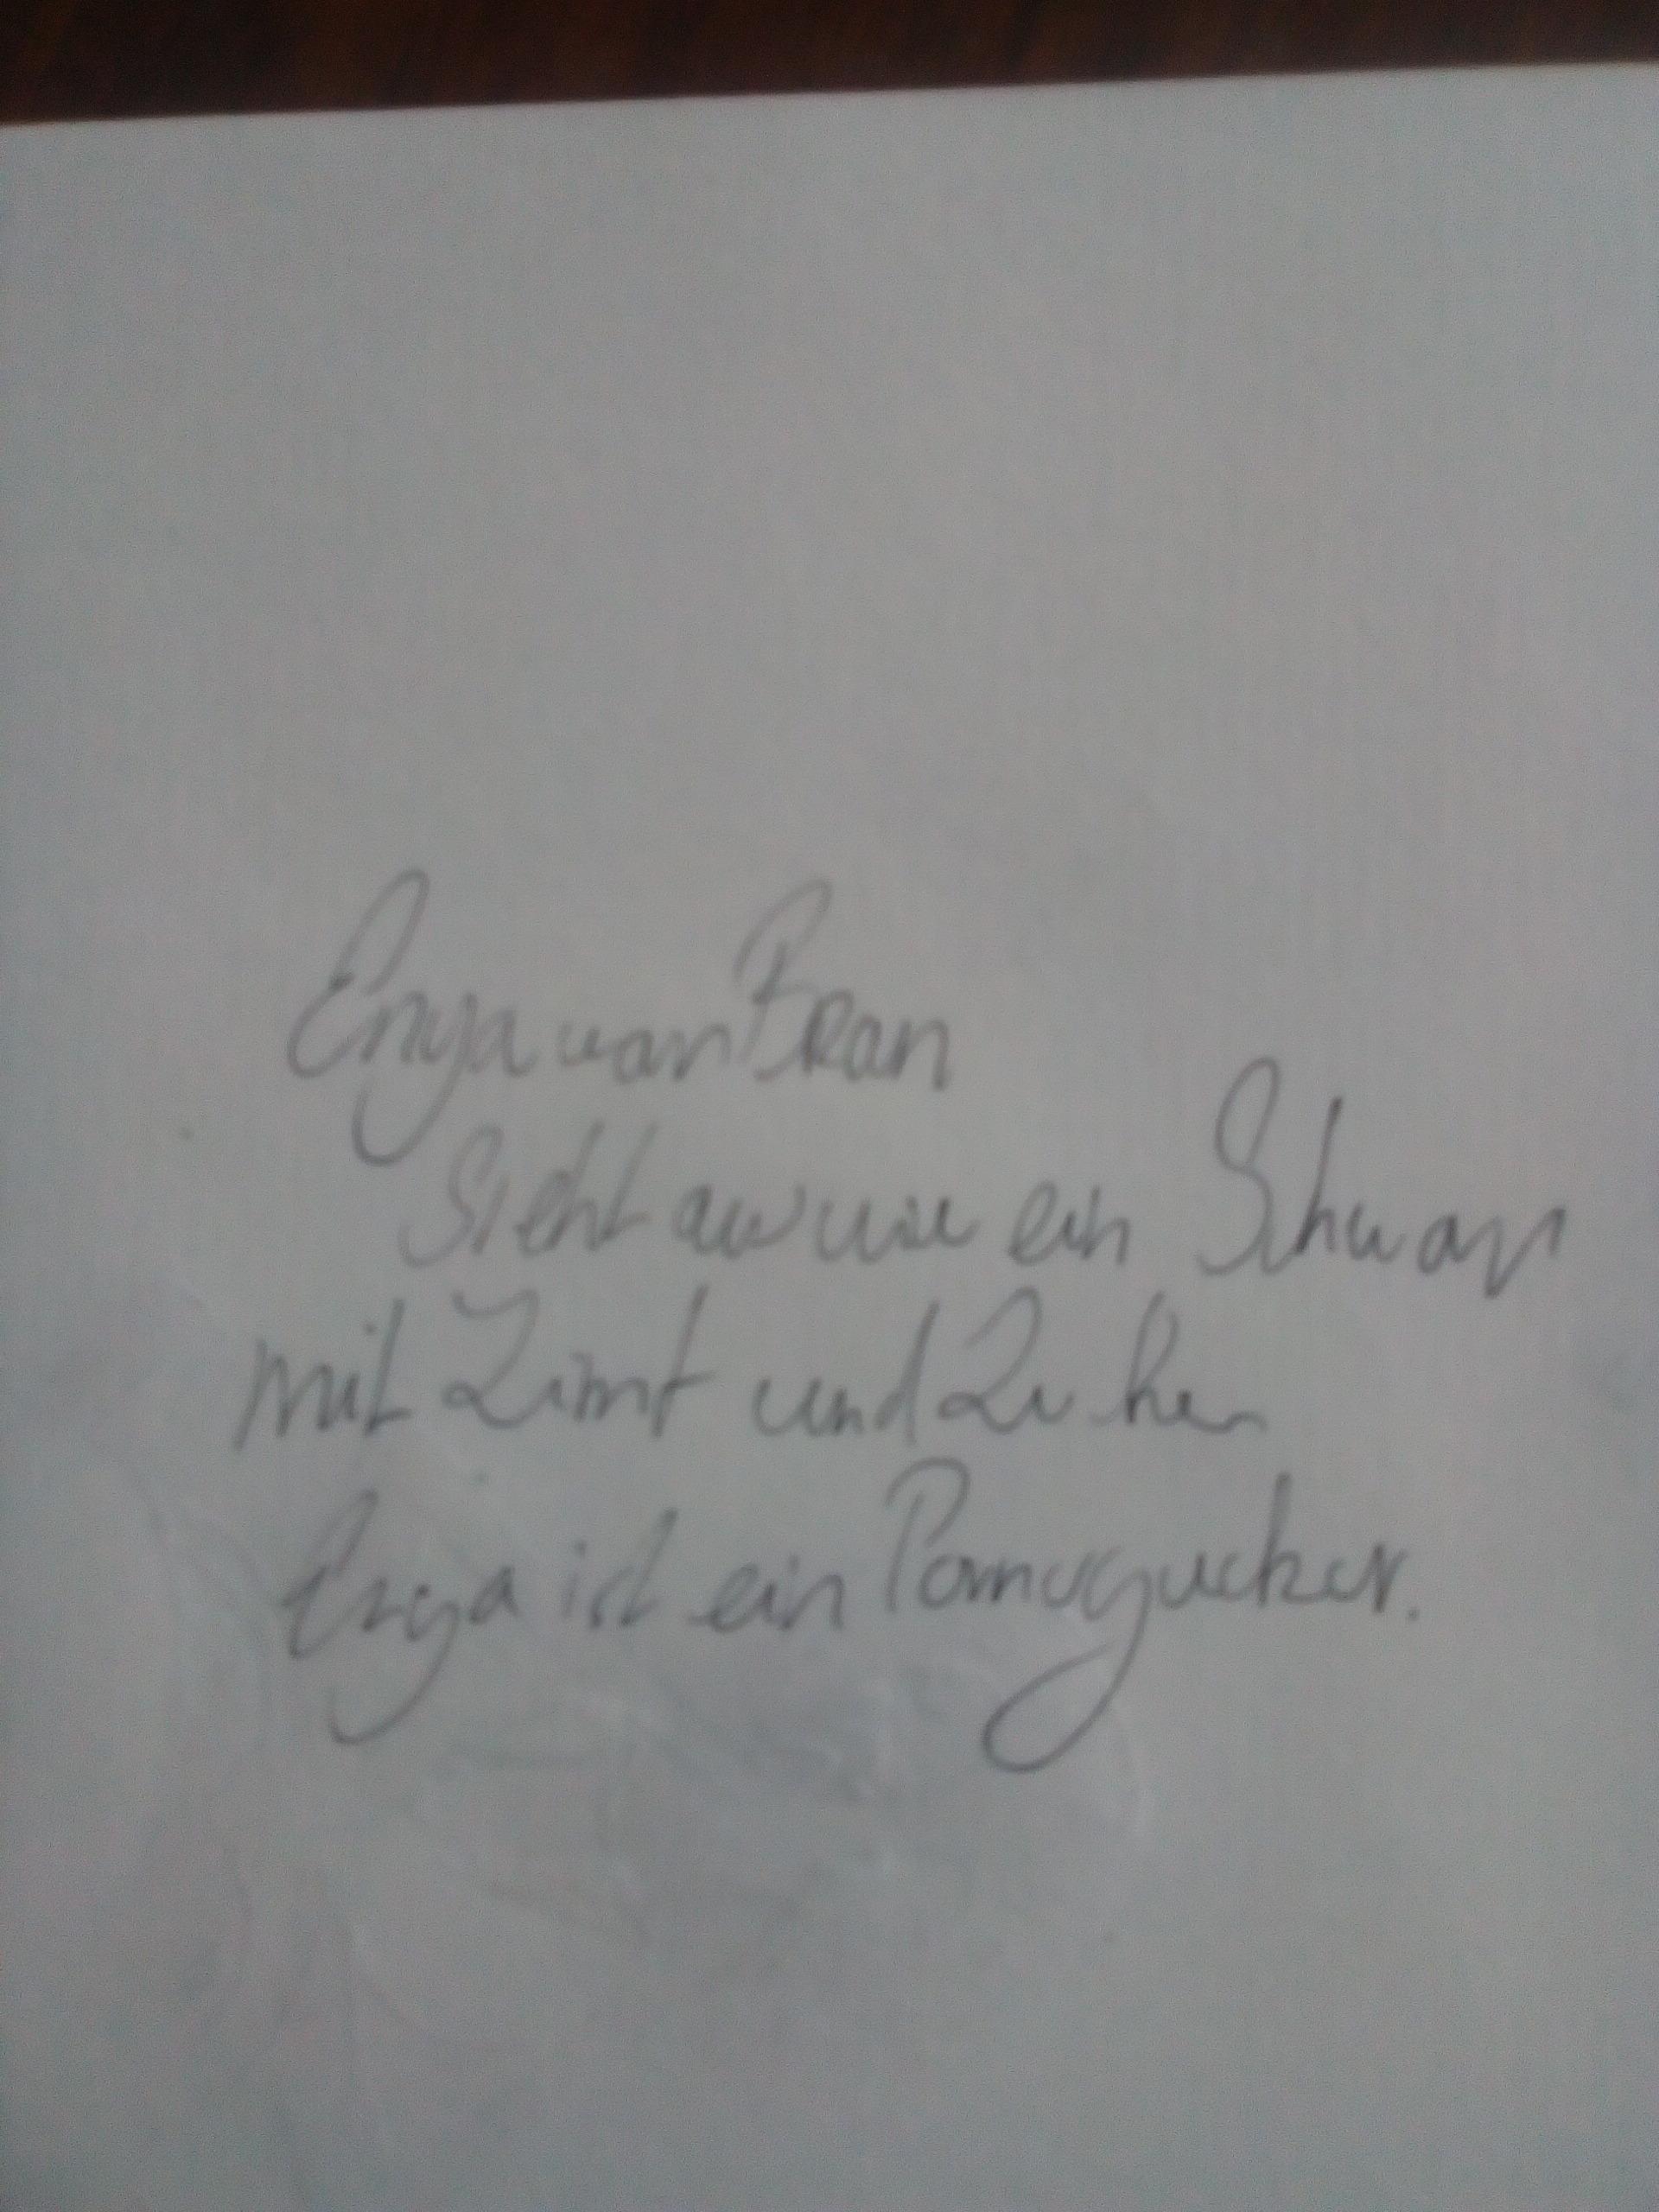 Enya van Bran
sieht aus wie ein Schwan
mit Zimt und Zucker
Enya ist ein Pornogucker.